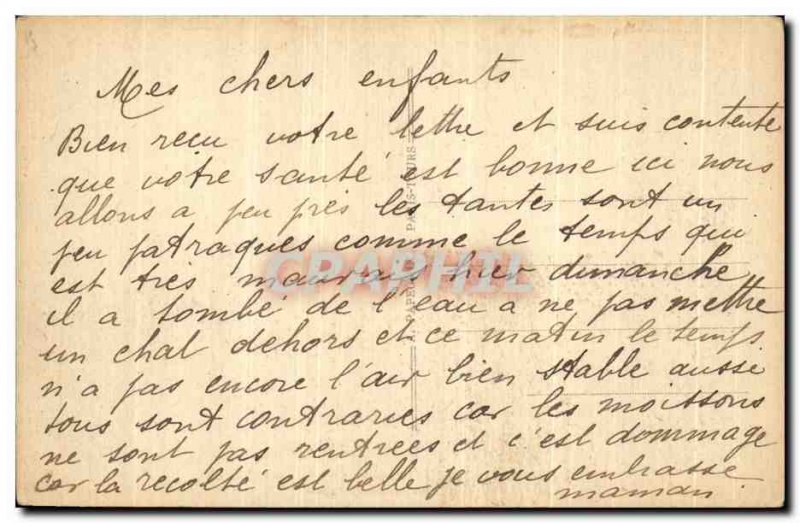 Mes chers enfants
Bien reçu votre lettre et suis contente
que votre santé est bonne ici nous
allons a peu près les tantes sont un
peu patraques comme le temps qui
est très mauvais hier dimanche
il a tombé de l'eau a ne pas mettre
un chat dehors et ce matin le temps
n'a pas encore l'air bien stable aussi
tous sont contraries car les moissons
ne sont pas rentrées et c'est dommage
car la recolte est belle je vous embrasse
maman
CRAPHIL